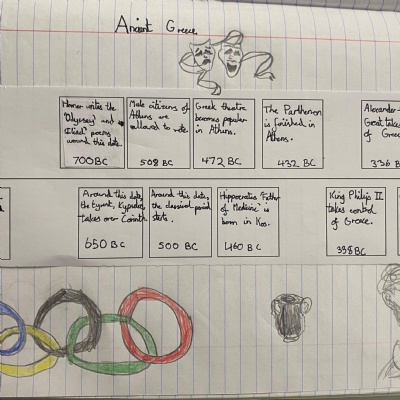 Ancient Greece
Homer writes the
"Odyssey" and
"Iliad" poems
around this date.
700 BC
Male citizens of
Athens are
allowed to vote.
508 BC
Greek theatre
becomes popular
in Athens.
472 BC
The Parthenon
is finished in
Athens.
432 BC
Alexander
Great takes
of Greece
336 B
Around this date,
the tyrant, Kypselos,
takes over Corinth.
650 BC
Around this date,
the classical period
starts.
500 BC
Hippocrates "Father
of Medicine" is
born in Kos.
460 BC
King Philip II
takes control
of Greece.
338 BC